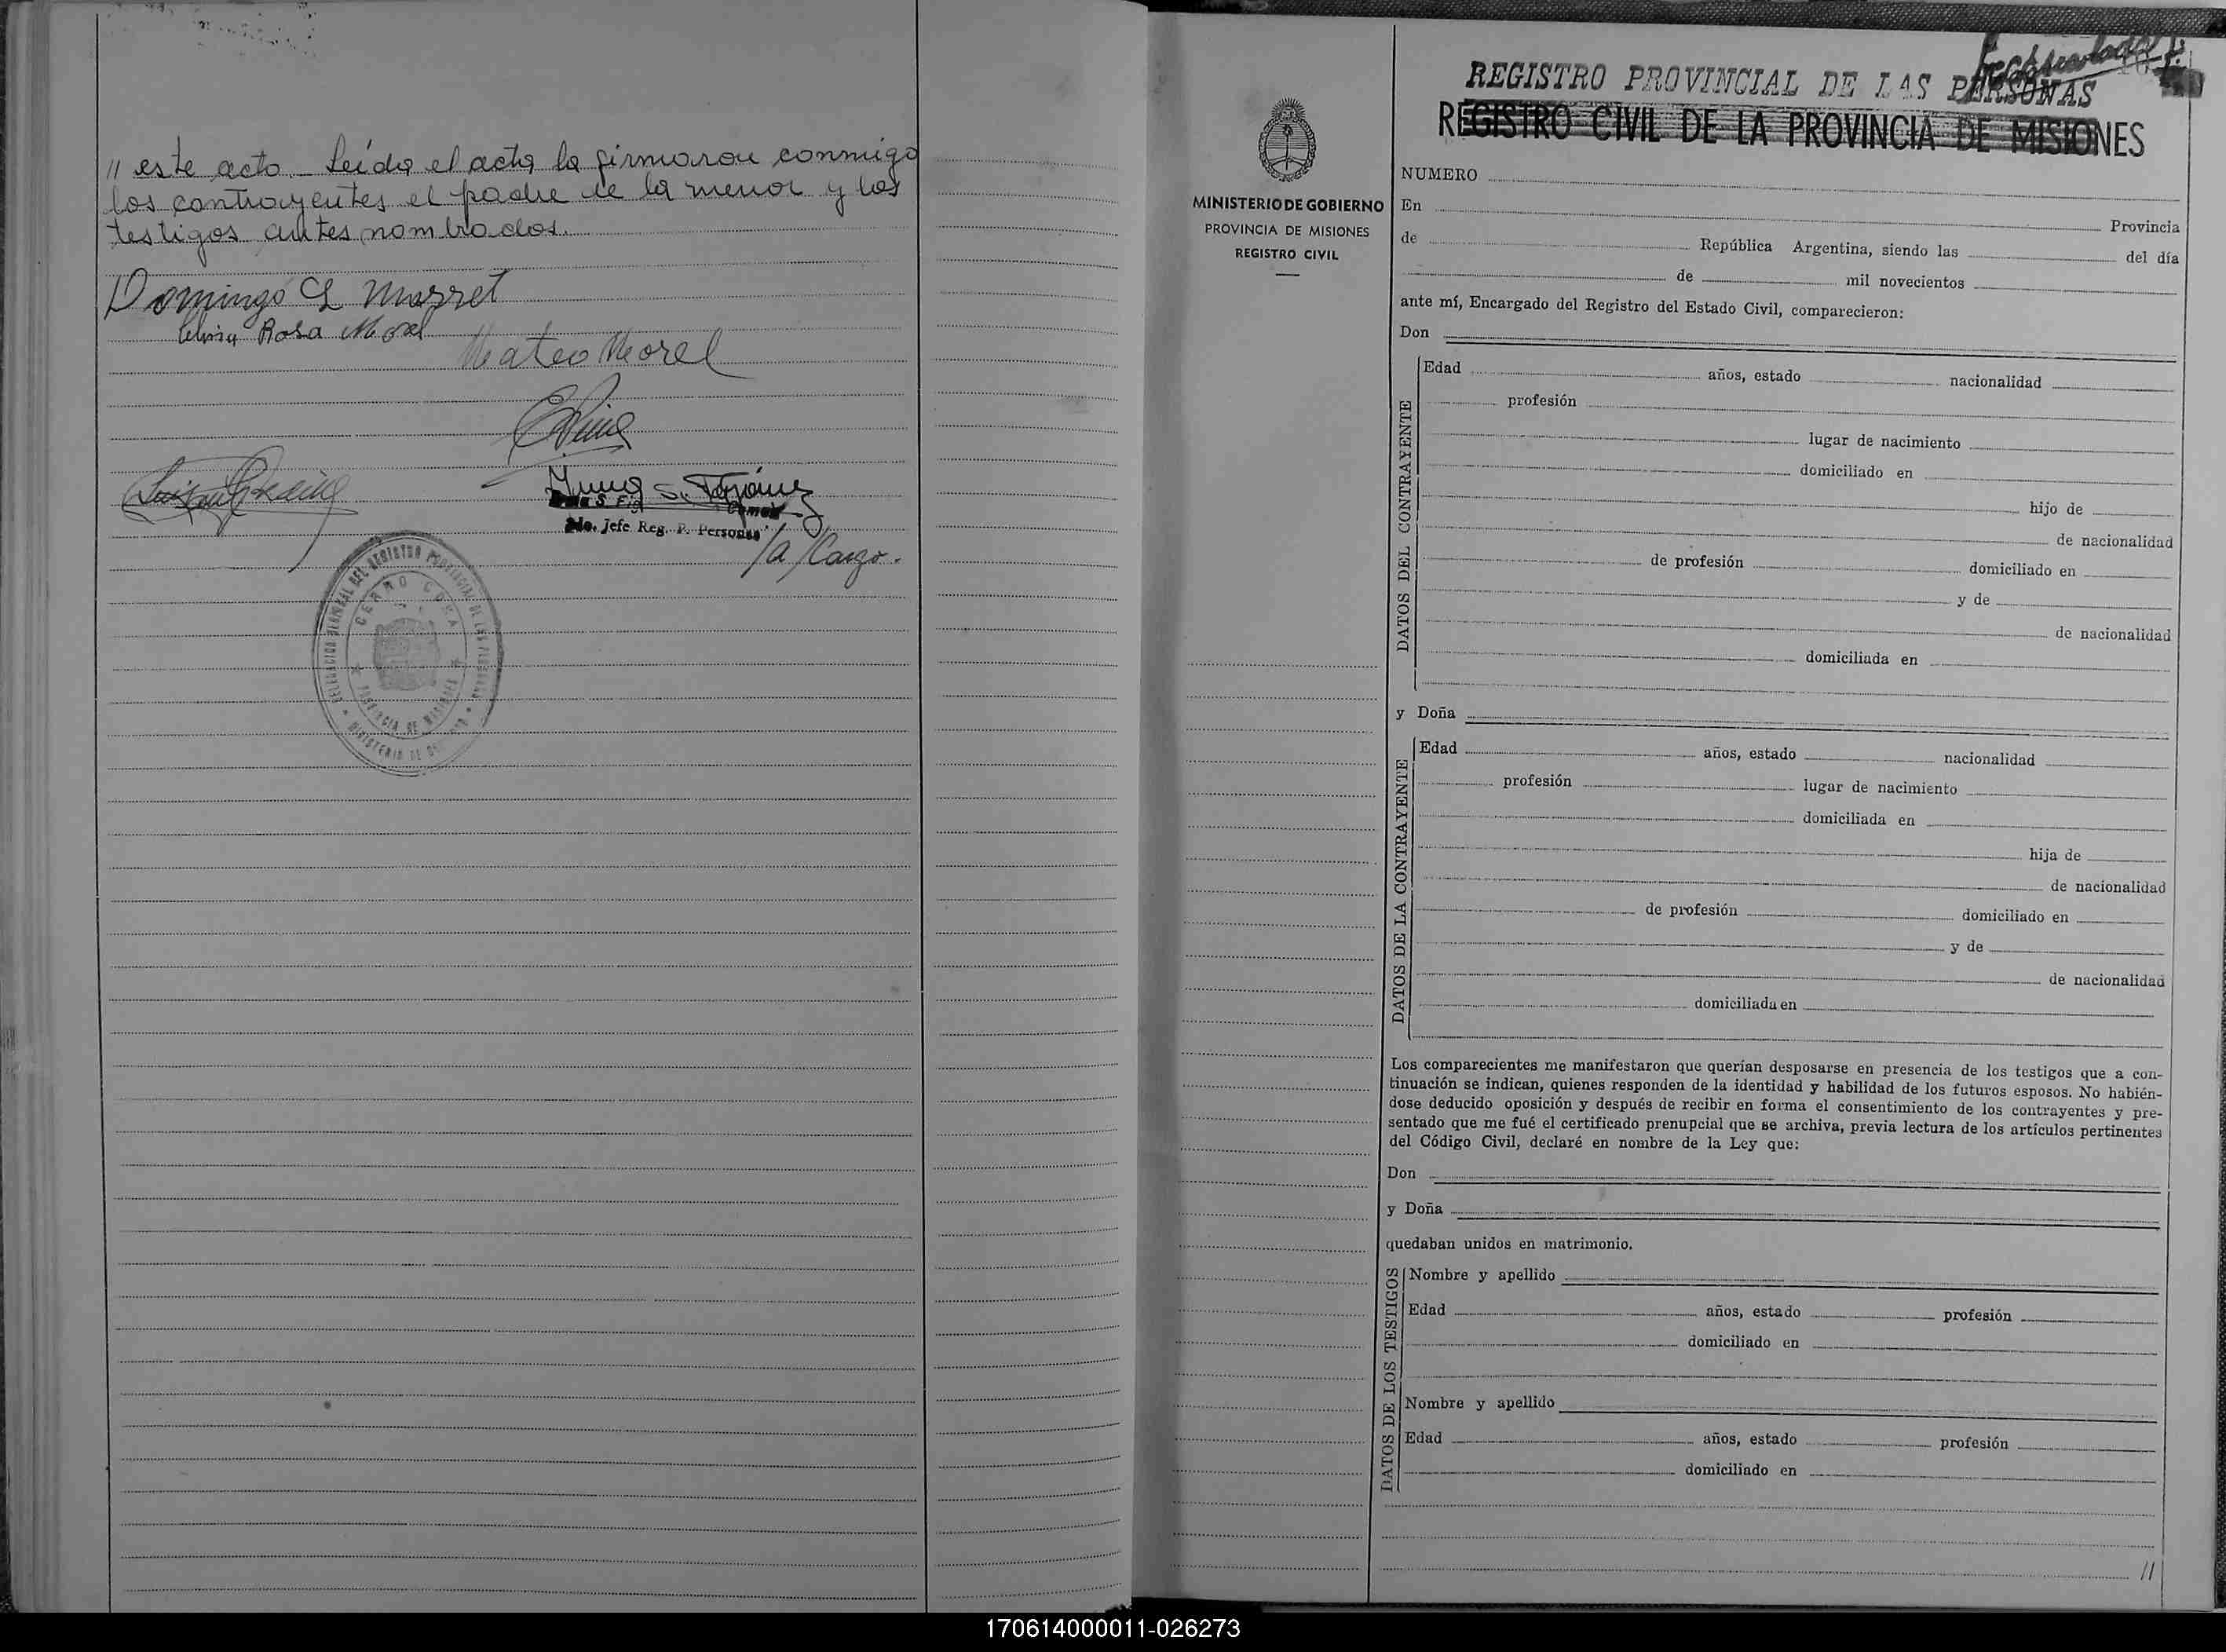 // este acto. Leída el acta la firmaron conmigo
los contrayentes el padre de la menor y los
testigos antes nombrados.
Domingo Marret
Rosa Morel
Mateo Morel
2do. Jefe Reg. P. Personas
/a/Cargo.
DELEGACION DEL REGISTRO PROVINCIAL DE LAS PERSONAS
CERRO CORA
PROVINCIA DE MISIONES
MINISTERIO DE
MINISTERIO DE GOBIERNO
PROVINCIA DE MISIONES
REGISTRO CIVIL
REGISTRO PROVINCIAL DE LAS PERSONAS
REGISTRO CIVIL DE LA PROVINCIA DE MISIONES
NUMERO
En Provincia
de República Argentina, siendo las del día
de mil novecientos
ante mí, Encargado del Registro del Estado Civil, comparecieron:
Don
DATOS DEL CONTRAYENTE
Edad años, estado nacionalidad
profesión
lugar de nacimiento
domiciliado en
hijo de
de nacionalidad
de profesión domiciliado en
y de
de nacionalidad
domiciliada en
y Doña
DATOS DE LA CONTRAYENTE
Edad años, estado nacionalidad
profesión lugar de nacimiento
domiciliada en
hija de
de nacionalidad
de profesión domiciliado en
y de
de nacionalidad
domiciliada en
Los comparecientes me manifestaron que querían desposarse en presencia de los testigos que a con-
tinuación se indican, quienes responden de la identidad y habilidad de los futuros esposos. No habién-
dose deducido oposición y después de recibir en forma el consentimiento de los contrayentes y pre-
sentado que me fué el certificado prenupcial que se archiva, previa lectura de los artículos pertinentes
del Código Civil, declaré en nombre de la Ley que:
Don
y Doña
quedaban unidos en matrimonio.
DATOS DE LOS TESTIGOS
Nombre y apellido
Edad años, estado profesión
domiciliado en
Nombre y apellido
Edad años, estado profesión
domiciliado en
//
170614000011-026273